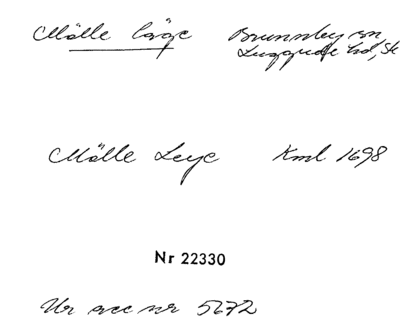 Mölle läge Brunnby sn
Luggude hd, Sk
Mölle Leye Kml 1698
Nr 22330
Ur acc nr 5672